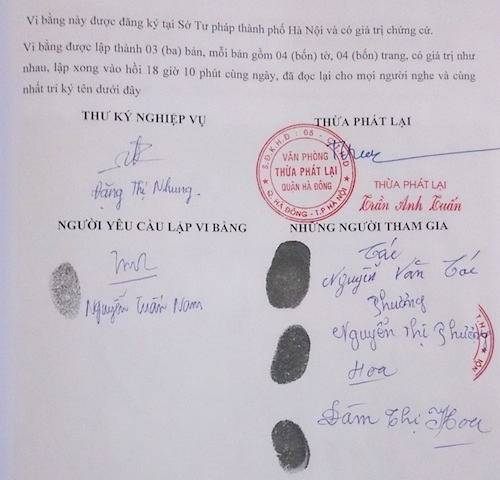 Vi bằng này được đăng ký tại Sở Tư pháp thành phố Hà Nội và có giá trị chứng cứ.
Vi bằng được lập thành 03 (ba) bản, mỗi bản gồm 04 (bốn) tờ, 04 (bốn) trang, có giá trị như
nhau, lập xong vào hồi 18 giờ 10 phút cùng ngày, đã đọc lại cho mọi người nghe và cùng
nhất trí ký tên dưới đây
THƯ KÝ NGHIỆP VỤ
Đặng Thị Nhung.
THỪA PHÁT LẠI
S.Đ.K.H.Đ : 05 -
VĂN PHÒNG
THỪA PHÁT LẠI
QUẬN HÀ ĐÔNG
Q. HÀ ĐÔNG - T.P HÀ NỘI
THỪA PHÁT LẠI
Trần Anh Tuấn
NGƯỜI YÊU CẦU LẬP VI BẰNG
Nguyễn Tuấn Nam
NHỮNG NGƯỜI THAM GIA
Tác
Nguyễn Văn Tác
Phương
Nguyễn Thị Phương
Hoa
Đàm Thị Hoa